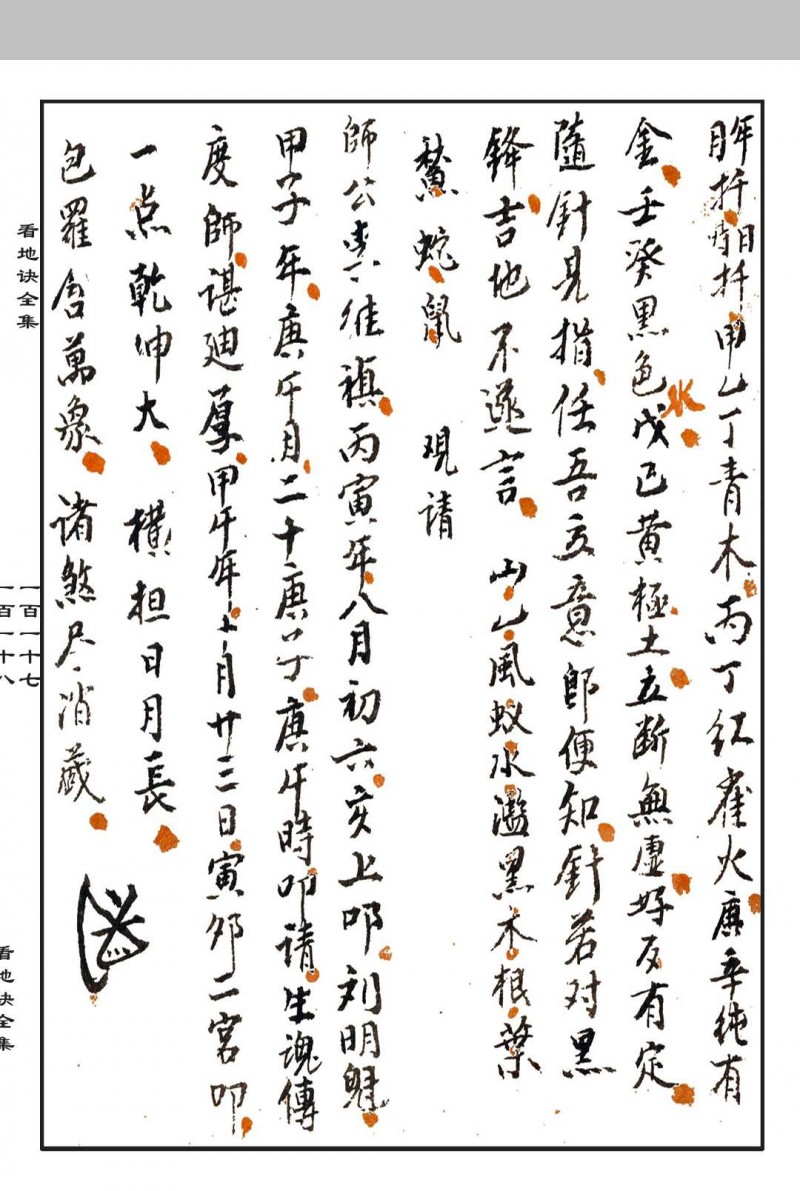 甲乙丁青木丙丁紅雀火庚辛純有
金壬癸黑色水戊己黃極土立断無虛好反有定
隨針見指任吾立意即便知針若对黑
鋒吉地不遜言 山山風蚁水濫黑木根葉
蛇鼠 現请
師公 禛丙寅年八月初六亥上叩刘明魁
甲子年庚午月二十庚子庚午時叩请生魂傳
度師谌廸厚甲午年十月廿三日寅卯二宮叩
一点乾坤大 横担日月長
包羅含萬象 诸煞尽消藏
看地诀全集
一百一十七
一百一十八
看地诀全集